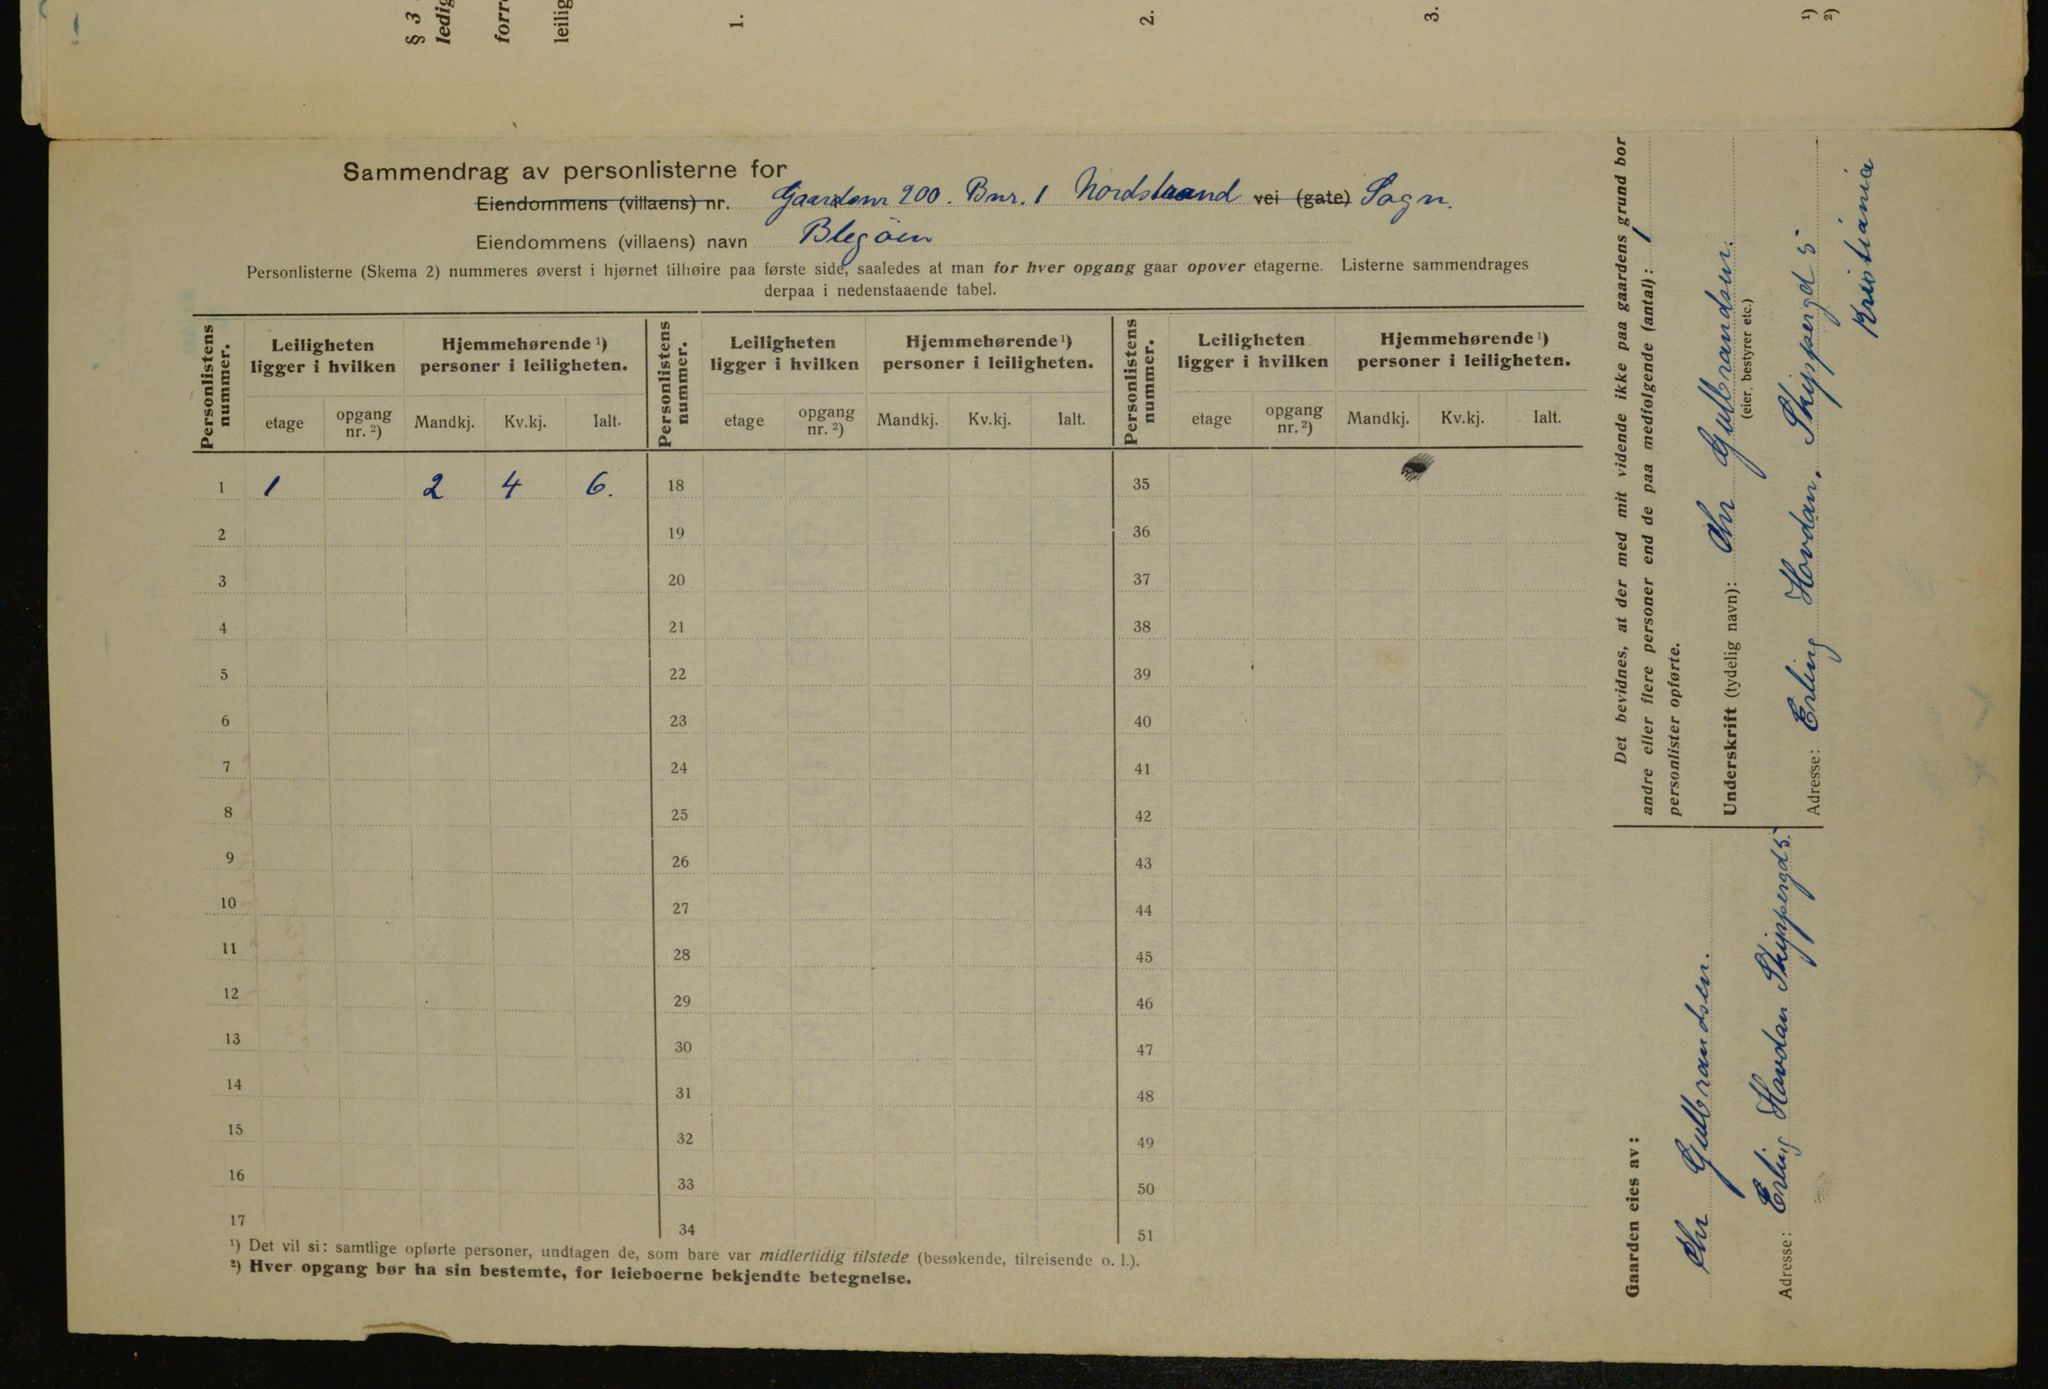 § 3
ledig
forr
leilig
1.
2.
3.
¹)
²)
Sammendrag av personlisterne for
Eiendommens (villaens) nr. Gaardsnr 200. Bnr. 1 Nordstrand vei (gate) Sogn.
Eiendommens (villaens) navn Blegöen
Personlisterne (Skema 2) nummeres øverst i hjørnet tilhøire paa første side, saaledes at man for hver opgang gaar opover etagerne. Listerne sammendrages
derpaa i nedenstaaende tabel.
Personlistens nummer. Leiligheten ligger i hvilken Hjemmehørende ¹) personer i leiligheten. Personlistens nummer. Leiligheten ligger i hvilken Hjemmehørende ¹) personer i leiligheten. Personlistens nummer. Leiligheten ligger i hvilken Hjemmehørende ¹) personer i leiligheten.
etage opgang nr. ²) Mandkj. Kv.kj. Ialt. etage opgang nr. ²) Mandkj. Kv.kj. Ialt. etage opgang nr. ²) Mandkj. Kv.kj. Ialt.
1 1 2 4 6. 18 35
2 19 36
3 20 37
4 21 38
5 22 39
6 23 40
7 24 41
8 25 42
9 26 43
10 27 44
11 28 45
12 29 46
13 30 47
14 31 48
15 32 49
16 33 50
17 34 51
¹) Det vil si: samtlige opførte personer, undtagen de, som bare var midlertidig tilstede (besøkende, tilreisende o. l.).
²) Hver opgang bør ha sin bestemte, for leieboerne bekjendte betegnelse.
Det bevidnes, at der med mit vidende ikke paa gaardens grund bor
andre eller flere personer end de paa medfølgende (antal): 1
personlister opførte.
Underskrift (tydelig navn): Chr Gulbrandsen.
(eier, bestyrer etc.)
Adresse: Erling Hovdan, Skippergd 5
Kristiania
Gaarden eies av:
Chr Gulbrandsen.
Adresse: Erling Hovdan Skippergd 5.